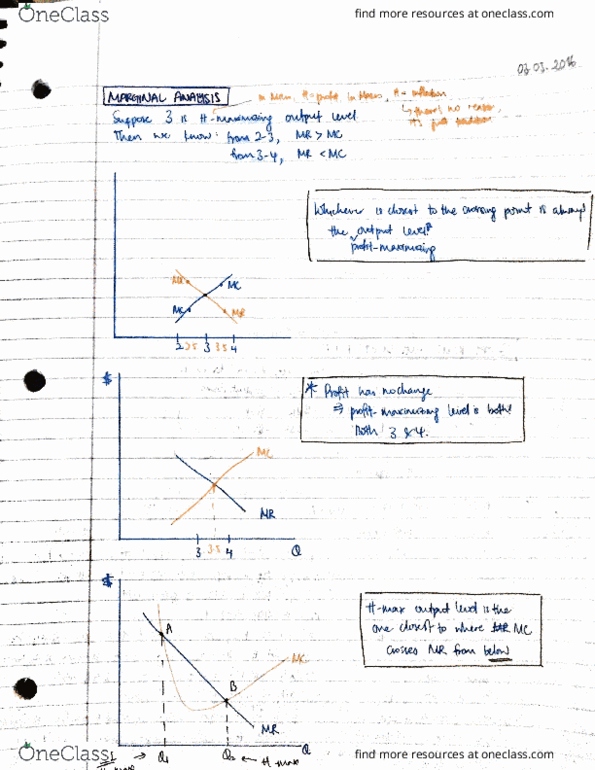 OneClass
find more resources at oneclass.com
03.03.2016
MARGINAL ANALYSIS
in Micro, π = profit. In Macro, π = inflation
↳ there's no reason,
just tradition
Suppose 3 is π-maximizing output level
Then we know: from 2-3, MR > MC
from 3-4, MR < MC
Whichever is closest to the crossing point is always
the profit-maximizing output level!
MR MC
MC MR
2 2.5 3 3.5 4
$
* Profit has no change
⇒ profit-maximizing level is both!
Both 3 & 4.
MC
MR
3 3.5 4 Q
$
π-max output level is the
one closest to where MC
crosses MR from below
A
MC
B
MR
Q
→ Q₁ Q₂ ← π max
OneClass
find more resources at oneclass.com